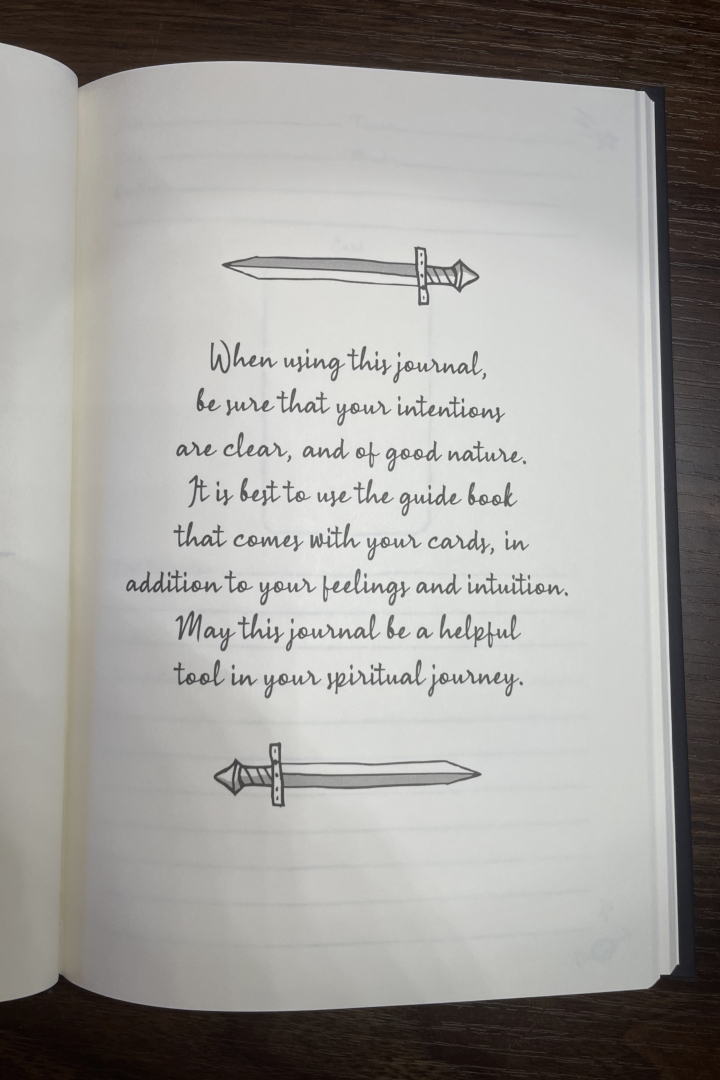 When using this journal,
be sure that your intentions
are clear, and of good nature.
It is best to use the guide book
that comes with your cards, in
addition to your feelings and intuition.
May this journal be a helpful
tool in your spiritual journey.